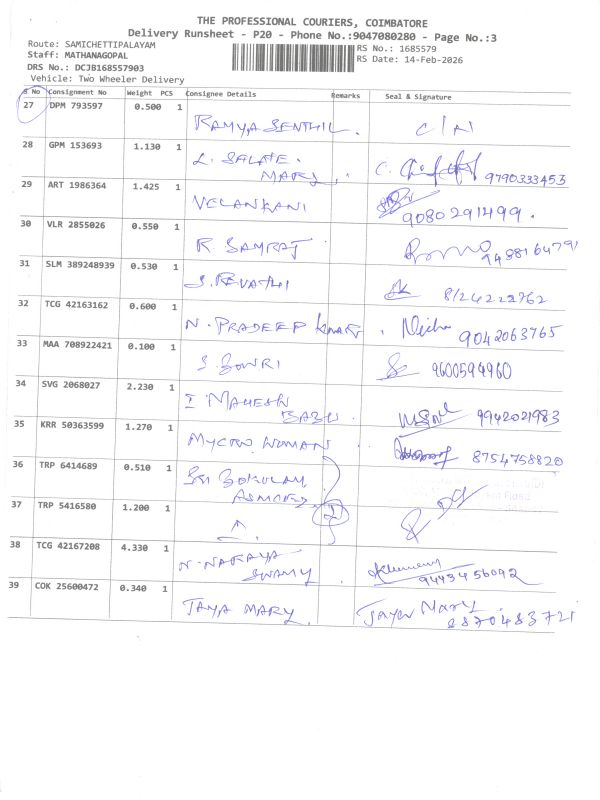 THE PROFESSIONAL COURIERS, COIMBATORE
Delivery Runsheet - P20 - Phone No.:9047080280 - Page No.:3
Route: SAMICHETTIPALAYAM
RS No.: 1685579
Staff: MATHANAGOPAL
RS Date: 14-Feb-2026
DRS No.: DCJB1685557903
Vehicle: Two Wheeler Delivery
S No Consignment No Weight PCS Consignee Details Remarks Seal & Signature
27 DPM 793597 0.500 1
RAMYA SENTHIL. C/N
28 GPM 153693 1.130 1
L. SALATE. MARY. 9790333453
29 ART 1986364 1.425 1
VELANKANI 9080291499.
30 VLR 2855026 0.550 1
R SAMRAJ
31 SLM 389248939 0.530 1
S. REVATHI 8124222762
32 TCG 42163162 0.600 1
N. PRADEEP KUMAR. 9042063765
33 MAA 708922421 0.100 1
S GOWRI 9600594960
34 SVG 2068027 2.230 1
I MAHESH BABU. 9942021983
35 KRR 50363599 1.270 1
WOMAN 8754758820
36 TRP 6414689 0.510 1
SRI GOKULAM
37 TRP 5416580 1.200 1
2
38 TCG 42167208 4.330 1
N. NARAYA SWAMY 9443456092
39 COK 25600472 0.340 1
JAYA MARY. Jaya Mary. 8870483721